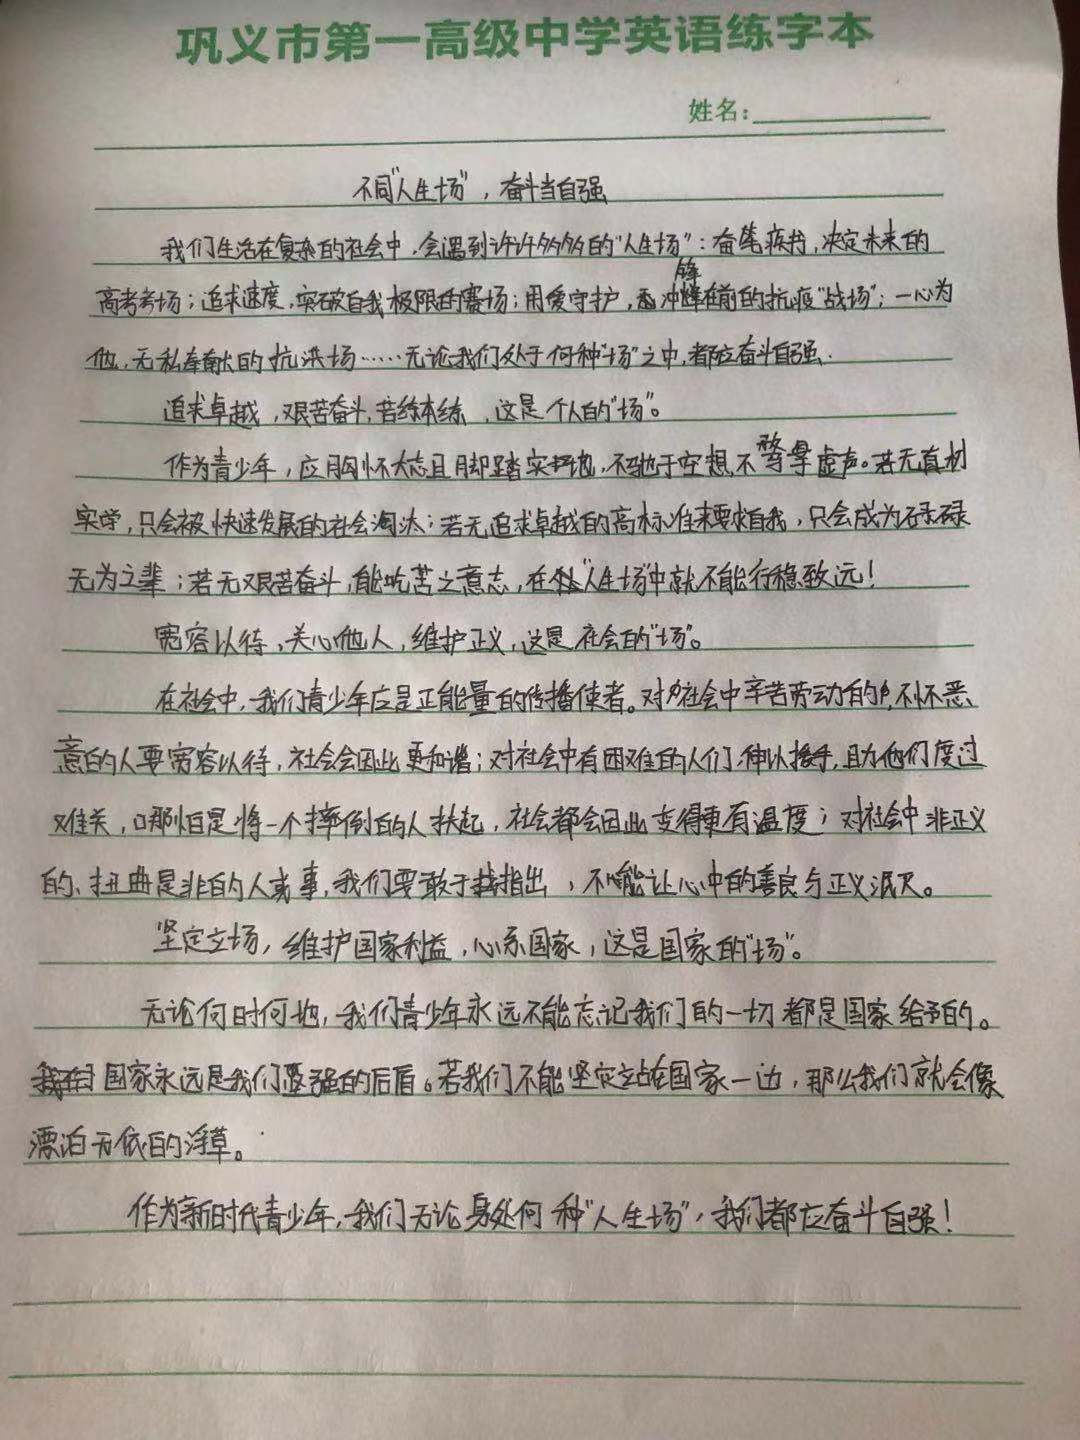 巩义市第一高级中学英语练字本
姓名:
不同"人生场",奋斗当自强
我们生活在复杂的社会中,会遇到许许多多的"人生场":奋笔疾书,决定未来的
高考考场;追求速度,突破自我极限的赛场;用爱守护,冲锋在前的抗疫"战场";一心为
他,无私奉献的抗洪场……无论我们处于何种"场"之中,都应奋斗自强.
追求卓越,艰苦奋斗,苦练本练,这是个人的"场"。
作为青少年,应胸怀大志且脚踏实地,不驰于空想,不骛虚声。若无真材
实学,只会被快速发展的社会淘汰;若无追求卓越的高标准来要求自我,只会成为碌碌
无为之辈;若无艰苦奋斗,能吃苦之意志,在"人生场"中就不能行稳致远!
宽容以待,关心他人,维护正义,这是社会的"场"。
在社会中,我们青少年应是正能量的传播使者。对社会中辛苦劳动的,不怀恶
意的人要宽容以待,社会会因此更和谐;对社会中有困难的人们,伸以援手,助他们度过
难关,哪怕是将一个摔倒的人扶起,社会都会因此变得更有温度;对社会中非正义
的、扭曲是非的人或事,我们要敢于指出,不能让心中的善良与正义泯灭。
坚定立场,维护国家利益,心系国家,这是国家的"场"。
无论何时何地,我们青少年永远不能忘记我们的一切都是国家给予的。
国家永远是我们坚强的后盾。若我们不能坚定站在国家一边,那么我们就会像
漂泊无依的浮草。
作为新时代青少年,我们无论身处何种"人生场",我们都应奋斗自强!